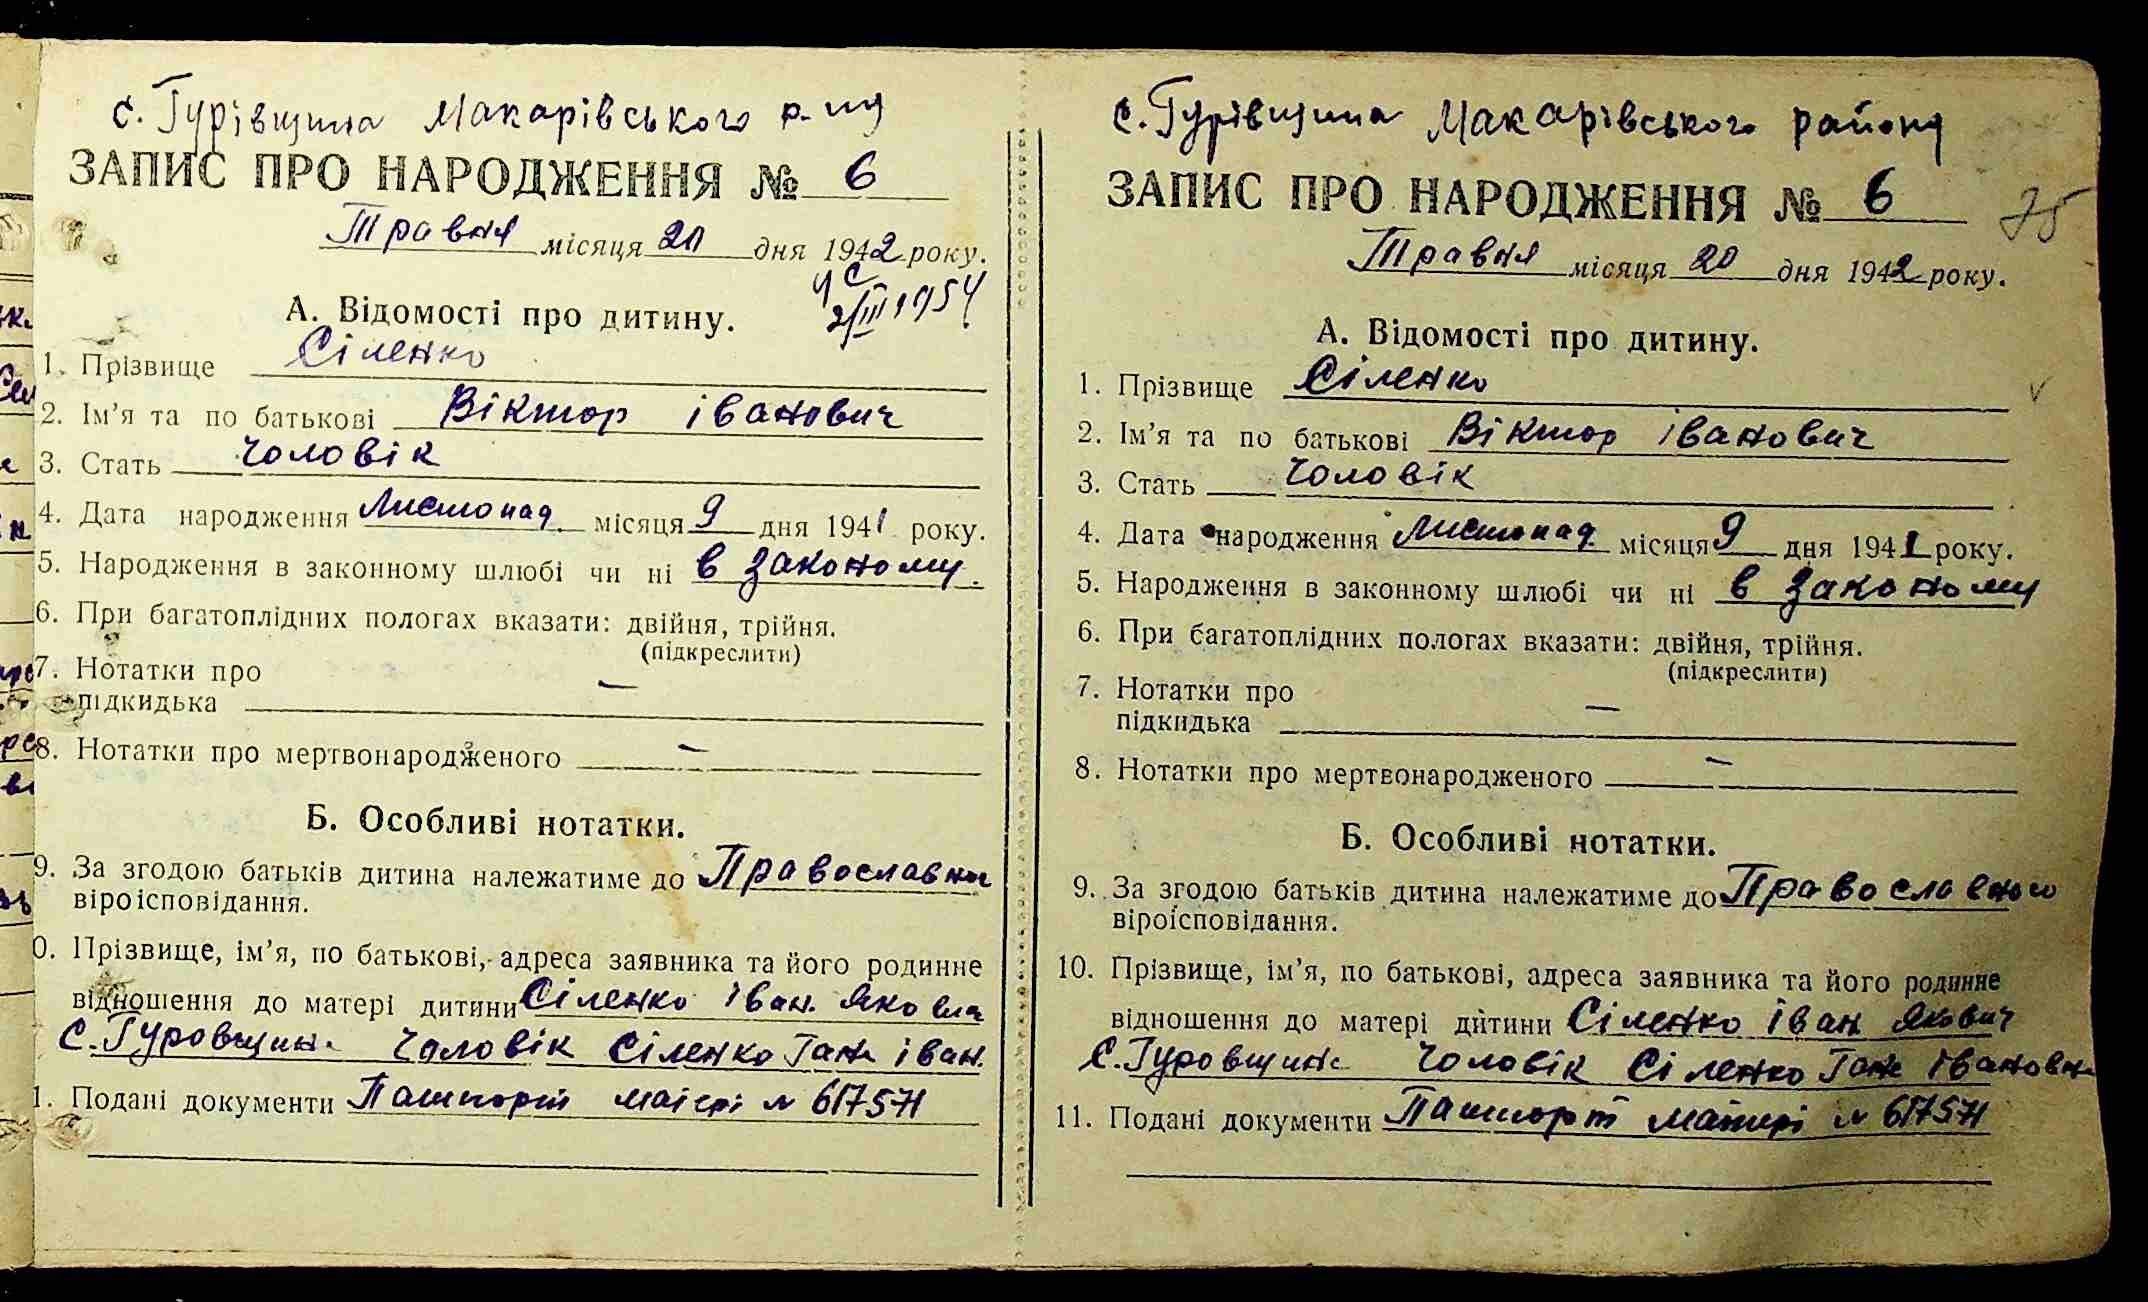 с. Гурівщина Макарівського р-ну
ЗАПИС ПРО НАРОДЖЕННЯ № 6
Травня місяця 20 дня 1942 року.
2/III 1954
А. Відомості про дитину.
1. Прізвище Сіленко
2. Ім'я та по батькові Віктор іванович
3. Стать Чоловік
4. Дата народження Листопад місяця 9 дня 1941 року.
5. Народження в законному шлюбі чи ні в законому.
6. При багатоплідних пологах вказати: двійня, трійня.
(підкреслити)
7. Нотатки про
підкидька —
8. Нотатки про мертвонародженого —
Б. Особливі нотатки.
9. За згодою батьків дитина належатиме до Православног
віроісповідання.
0. Прізвище, ім'я, по батькові, адреса заявника та його родинне
відношення до матері дитини Сіленко іван
с. Гуровщин. Чоловік Сіленко Ган іван.
1. Подані документи Пашпорт матері № 617571
с. Гурівщина Макарівського району
ЗАПИС ПРО НАРОДЖЕННЯ № 6
75
Травня місяця 20 дня 1942 року.
А. Відомості про дитину.
1. Прізвище Сіленко
2. Ім'я та по батькові Віктор іванович
3. Стать Чоловік
4. Дата народження Листопад місяця 9 дня 1941 року.
5. Народження в законному шлюбі чи ні в закономy
6. При багатоплідних пологах вказати: двійня, трійня.
(підкреслити)
7. Нотатки про
підкидька —
8. Нотатки про мертвонародженого —
Б. Особливі нотатки.
9. За згодою батьків дитина належатиме до Православного
віроісповідання.
10. Прізвище, ім'я, по батькові, адреса заявника та його родинне
відношення до матері дитини Сіленко Іван Якович
с. Гуровщин. Чоловік Сіленко Ган івановн
11. Подані документи Пашпорт матері № 617571